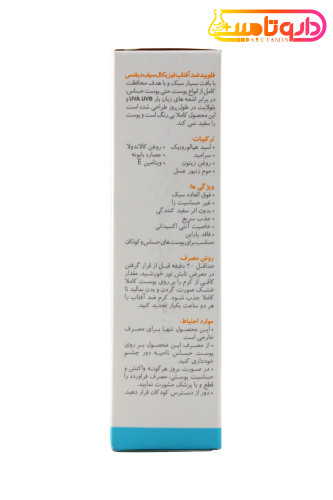 داروتامین
DARUTAMIN
فلویید ضد آفتاب فیزیکال سیف دیفنس
با بافت بسیار سبک و با هدف محافظت
کامل از انواع پوست، حتی پوست حساس،
در برابر اشعه های زیان بار UVA، UVB و
بلولایت در طول روز طراحی شده است.
این محصول کاملا بی رنگ است و پوست
را سفید نمی کند.
ترکیبات
• اسید هیالورونیک
• روغن کالاندولا
• سرامید
• عصاره بابونه
• روغن زیتون
• ویتامین E
• موم زنبور عسل
ویژگی ها:
• فوق العاده سبک
• غیر حساسیت زا
• بدون اثر سفید کنندگی
• جذب سریع
• خاصیت آنتی اکسیدانی
• فاقد پارابن
• مناسب برای پوست های حساس و کودکان
روش مصرف
حداقل ۲۰ دقیقه قبل از قرار گرفتن
در معرض تابش نور خورشید، مقدار
کافی از کرم را بر روی پوست کاملا
خشک صورت، گردن و بدن بمالید تا
کاملا جذب شود. کرم ضد آفتاب را
هر دو ساعت یکبار تمدید کنید.
موارد احتیاط:
• این محصول تنها برای مصرف
خارجی است.
• از مصرف این محصول بر روی
پوست حساس ناحیه دور چشم
خودداری کنید.
• در صورت بروز هرگونه واکنش و
حساسیت پوستی، مصرف فرآورده را
قطع و با پزشک مشورت نمایید.
• دور از دسترس کودکان قرار دهید.